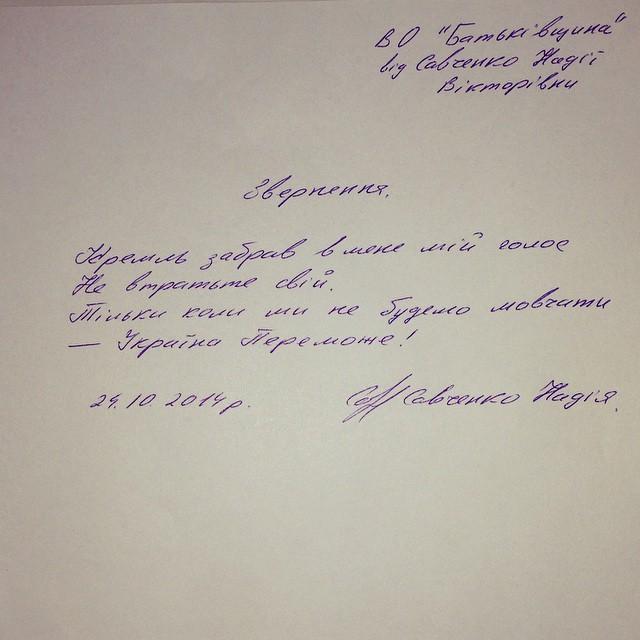 ВО "Батьківщина"
від Савченко Надії
Вікторівни
Звернення.
Кремль забрав в мене мій голос
Не втратьте свій.
Тільки коли ми не будемо мовчати
— Україна Переможе!
24.10.2014р.
Савченко Надія.